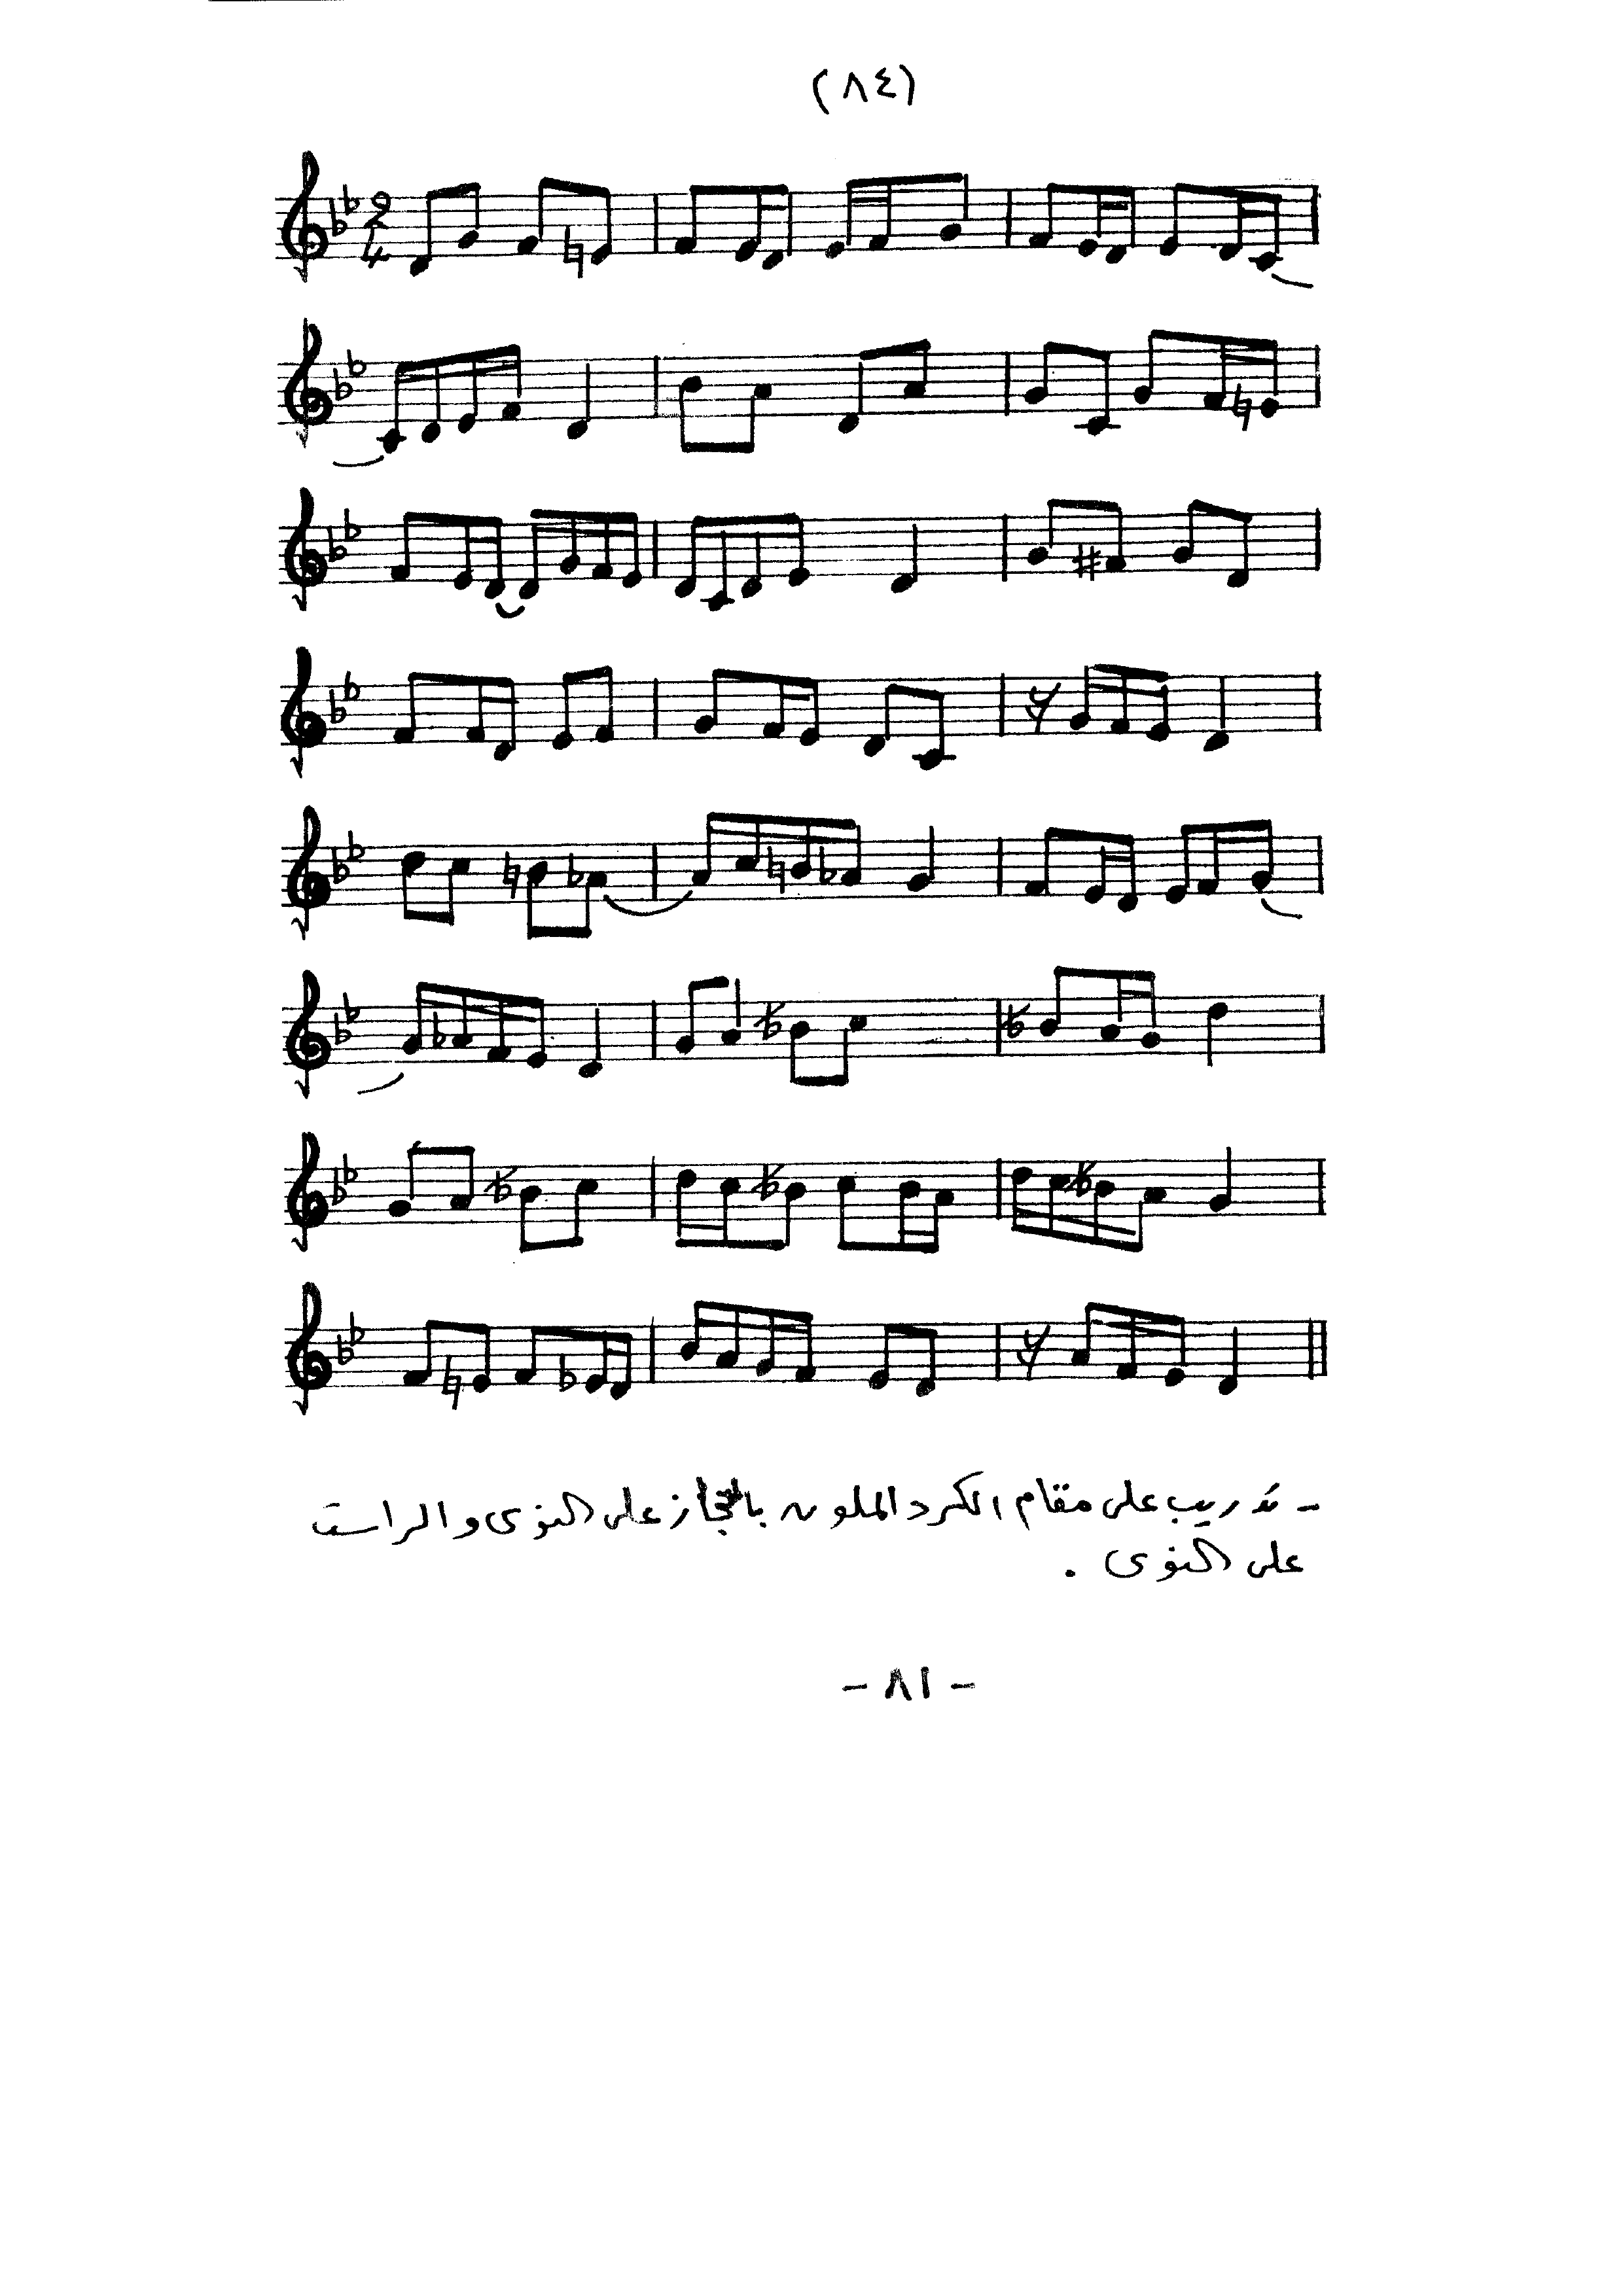 (٨٤)
2
4
- تدريب على مقام الكرد الملون بالحجاز على النوى والراست
على النوى .
- ٨١ -